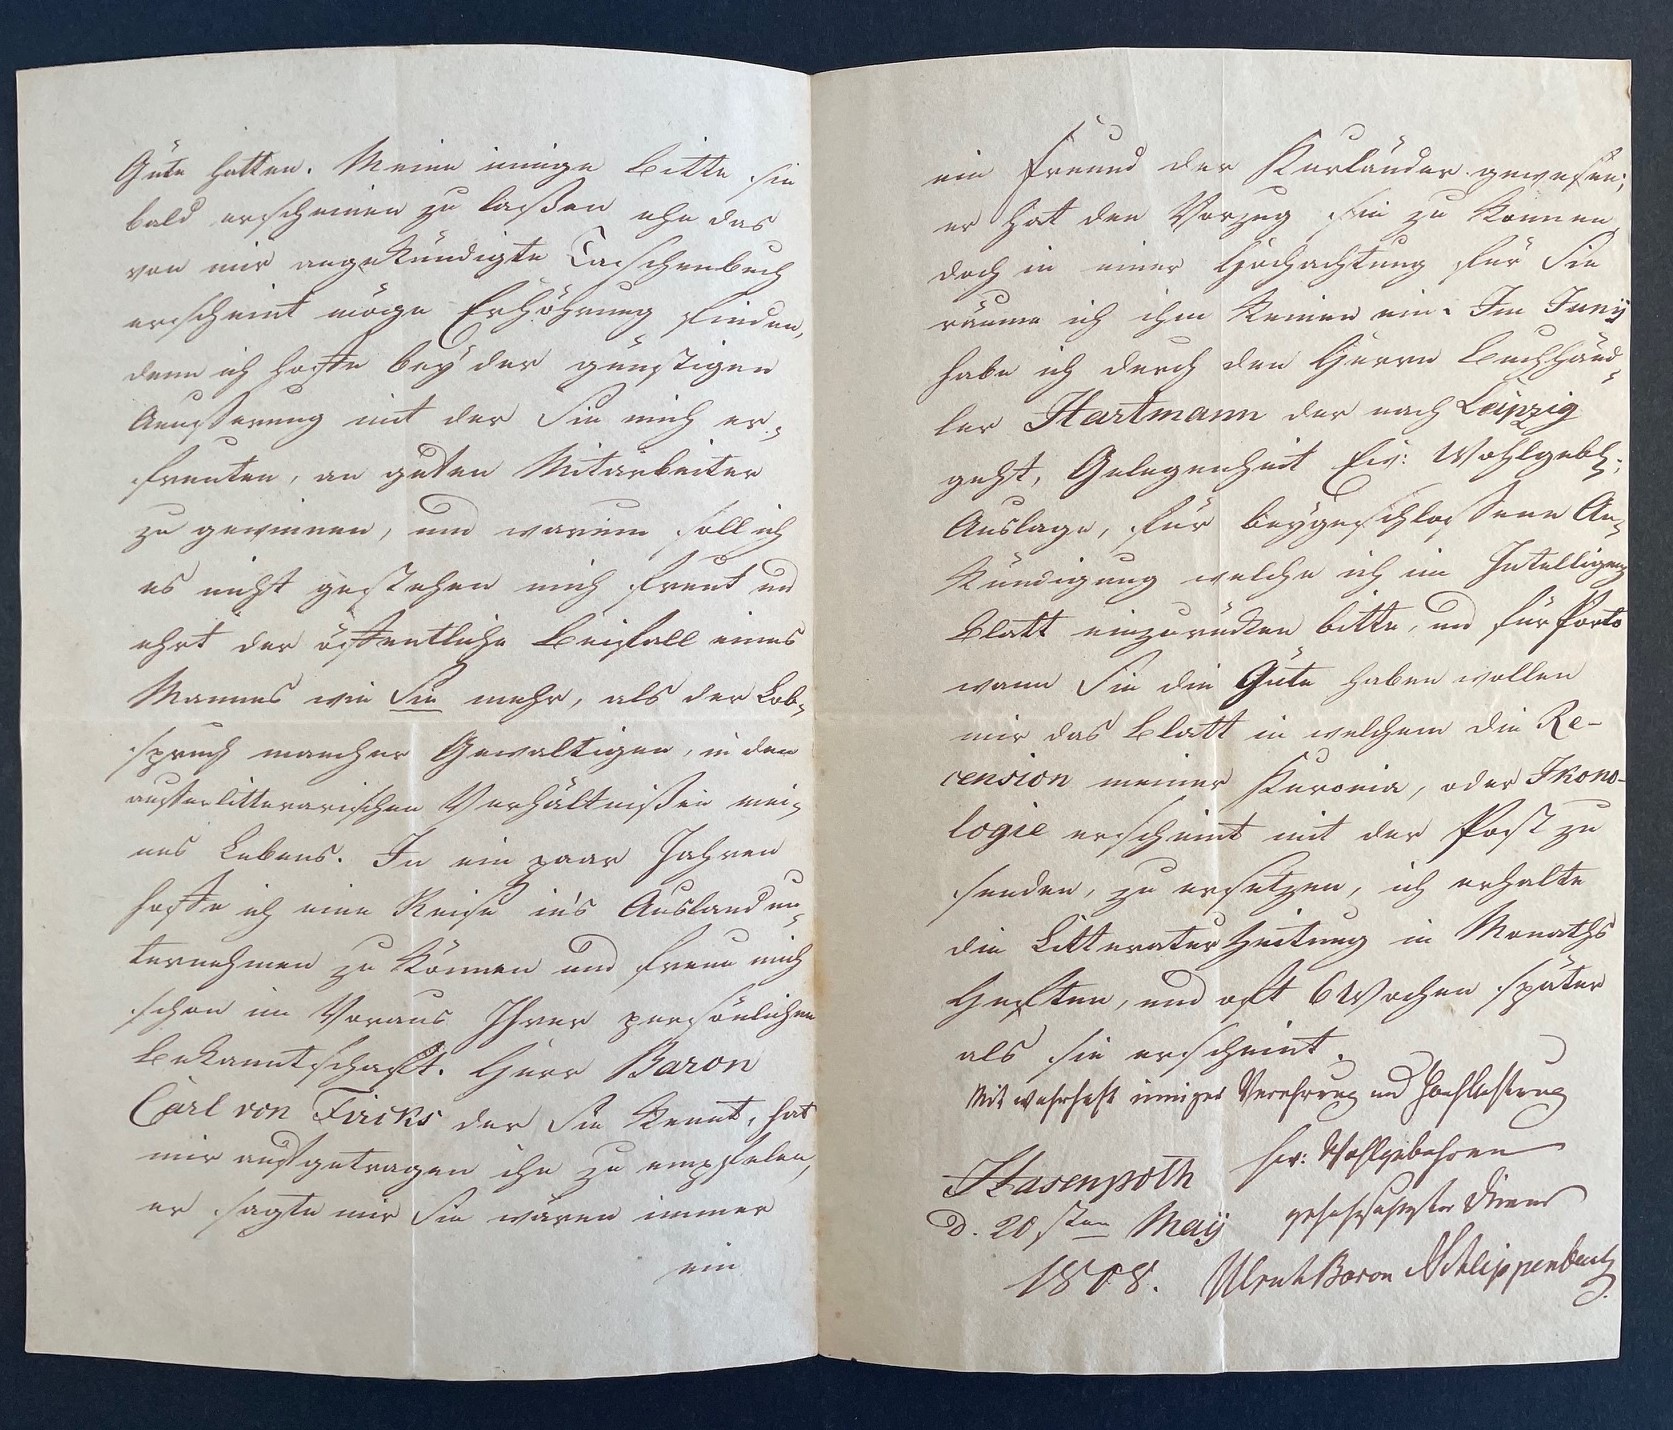 Güte hatten. Meine innige Bitte sie
bald erscheinen zu laßen ehe das
von mir angekündigte Taschenbuch
erscheint möge Erhöhrung finden,
denn ich hoffe bey der günstigen
Aeusserung mit der Sie mich er-
freuten, an guten Mitarbeiter
zu gewinnen, und warum soll ich
es nicht gestehen mich freut und
ehrt der öffentliche Beifall eines
Mannes wie Sie mehr, als der Lob-
spruch mancher Gewaltigen, in den
ausserlitterarischen Verhältnißen mei-
nes Lebens. In ein paar Jahren
hoffe ich eine Reise in's Ausland un-
ternehmen zu können und freue mich
schon im Voraus Ihrer persönlichen
Bekanntschaft. Herr Baron
Carl von Fircks der Sie kennt, hat
mir aufgetragen ihn zu empfelen,
er sagte mir Sie wären immer
ein
ein Freund der Kurländer gewesen;
er hat den Vorzug Sie zu kennen,
doch in einer Hochachtung für Sie
räume ich ihm keinen ein. Im Junÿ
habe ich durch den Herrn Buchhänd-
ler Hartmann der nach Leipzig
geht, Gelegenheit Ew: Wohlgebh:
Auslage, für beygeschlossene An-
kündigung welche ich im Intelligenz
Blatt einzurücken bitte, und für Porto
wann Sie die Güte haben wollen
mir das Blatt in welchem die Re-
cension meiner Kuronia, oder Ikono-
logie erscheint mit der Post zu
senden, zu ersetzen, ich erhalte
die Litteratur Zeitung in Monaths
Heften, und oft 6 Wochen später
als sie erscheint.
Mit wahrhaft inniger Verehrung und Hochachtung
Ew: Wohlgebohren
Hasenpoth
gehorsamster Diener
d. 20sten Maÿ
1808. Ulrich Baron Schlippenbach